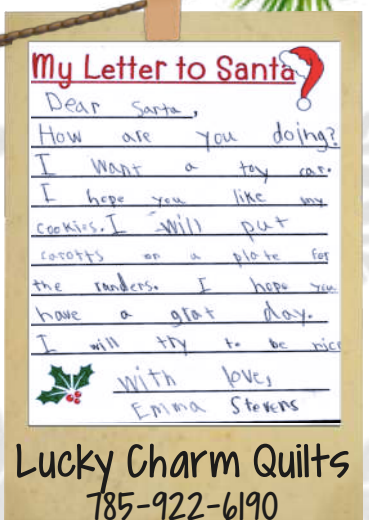 My Letter to Santa
Dear Santa,
How are you doing?
I want a toy car.
I hope you like my
cookies. I will put
carotts on a plate for
the randers. I hope you
have a grat day.
I will try to be nice
with love,
Emma Stevens
Lucky Charm Quilts
785-922-6190